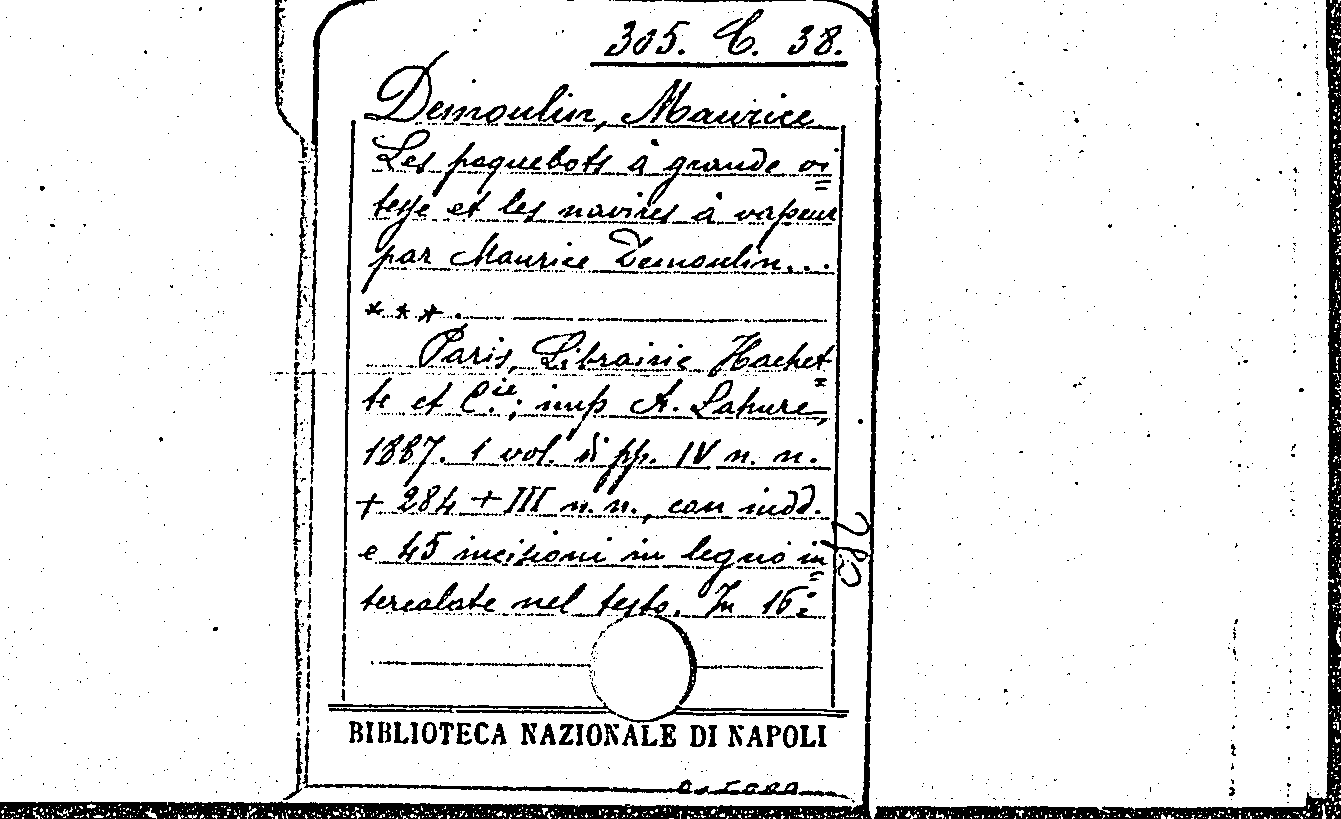 305. C. 38.
Demoulin, Maurice
Les paquebots à grande vi=
tesse et les navires à vapeur
par Maurice Demoulin...
* * *.
Paris, Librairie Hachet=
te et C.ie; imp A. Lahure,
1887. 1 vol. di pp. IV n. n.
+ 284 + III n. n., con indd.
e 45 incisioni in legno in=
tercalate nel testo. In 16°.
BIBLIOTECA NAZIONALE DI NAPOLI